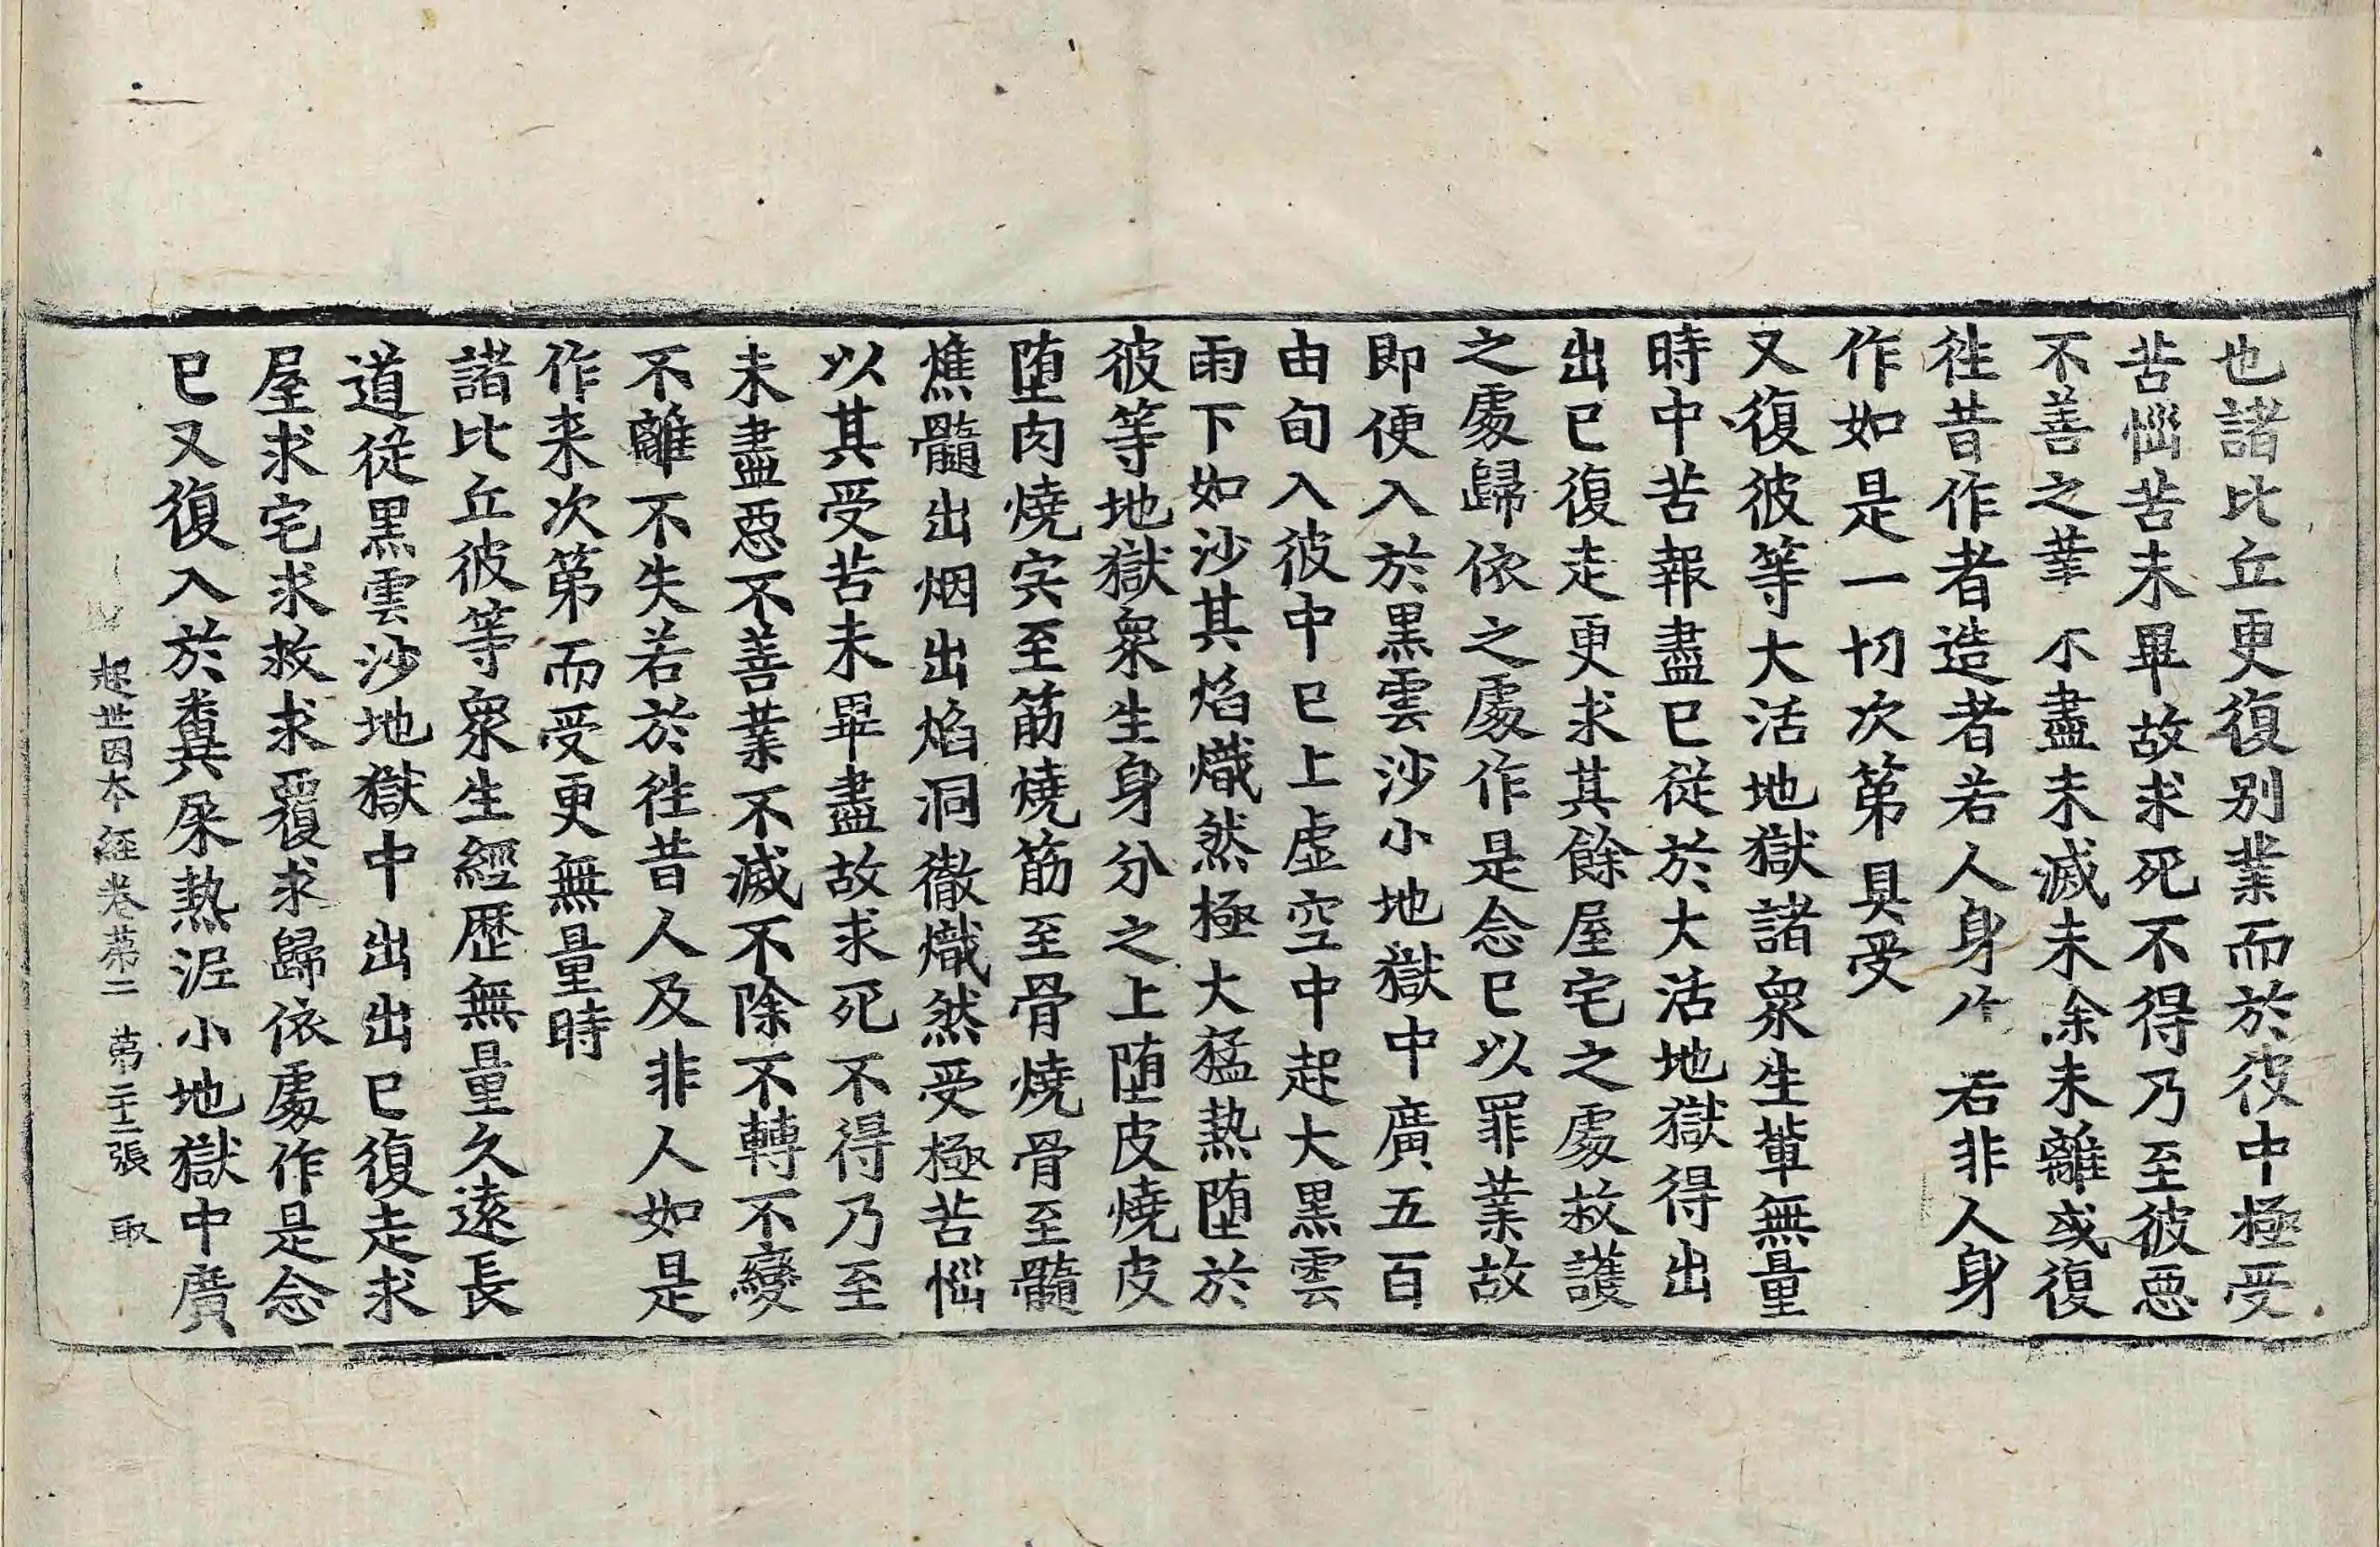 也諸比丘更復別業而於彼中極受
苦惱苦未畢故求死不得乃至彼惡
不善之業不盡未滅未除未離或復
徃昔作者造者若人身作若非人身
作如是一切次第具受
又復彼等大活地獄諸衆生軰無量
時中苦報盡已從於大活地獄得出
出已復走更求其餘屋宅之處救護
之處歸依之處作是念已以罪業故
即便入於黒雲沙小地獄中廣五百
由旬入彼中已上虛空中起大黒雲
雨下如沙其焰熾然極大猛熱墮於
彼等地獄衆生身分之上墮皮燒皮
墮肉燒宍至筋燒筋至骨燒骨至髓
燋髓出烟出焰洞徹熾然受極苦惱
以其受苦未畢盡故求死不得乃至
未盡惡不善業不滅不除不轉不變
不離不失若於徃昔人及非人如是
作来次第而受更無量時
諸比丘彼等衆生經歷無量久遠長
道從黒雲沙地獄中出出已復走求
屋求宅求救求覆求歸依處作是念
已又復入於糞屎熱泥小地獄中廣
起世因本經卷第二 第二十二張 取